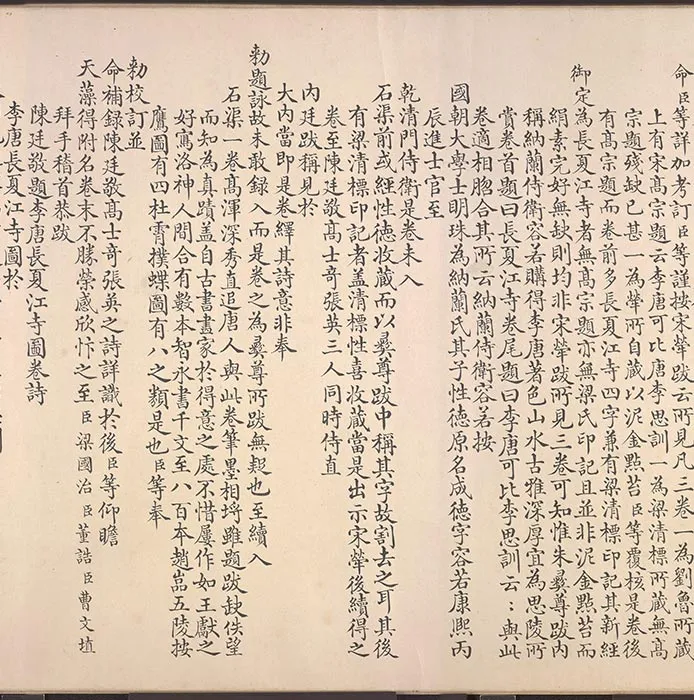 命臣等詳加考訂臣等謹按宋犖跋云所見凡三卷一為劉魯所藏
上有宋高宗題云李唐可比唐李思訓一為梁清標所藏無高
宗題殘缺已甚一為犖所自藏以泥金點苔臣等覆核是卷後
有高宗題而卷前多長夏江寺四字兼有梁清標印記其新經
御定為長夏江寺者無高宗題亦無梁氏印記且並非泥金點苔而
絹素完好無缺則均非宋犖跋所見三卷可知惟朱彝尊跋內
稱納蘭侍衛容若購得李唐著色山水古雅深厚宜為思陵所
賞卷首題曰長夏江寺卷尾題曰李唐可比李思訓云云與此
卷適相脗合其所云納蘭侍衛容若按
國朝大學士明珠為納蘭氏其子性徳原名成徳字容若康熙丙
辰進士官至
乾清門侍衛是卷未入
石渠前或經性徳收藏而以彝尊跋中稱其字故割去之耳其後
有梁清標印記者盖清標性喜收藏當是出示宋犖後續得之
卷至陳廷敬高士奇張英三人同時侍直
內廷跋稱見於
大內當即是卷繹其詩意非奉
勅題詠故未敢錄入而是卷之為彝尊所跋無疑也至續入
石渠一卷高渾深秀直追唐人與此卷筆墨相埒雖題跋缺佚望
而知為真蹟盖自古書畫家於得意之處不惜屢作如王獻之
好寫洛神人間合有數本智永書千文至八百本趙嵓五陵按
鷹圖有四杜霄撲蝶圖有八之類是也臣等奉
勅校訂並
命補錄陳廷敬高士奇張英之詩詳識於後臣等仰瞻
天藻得附名卷末不勝榮感欣忭之至臣梁國治臣董誥臣曹文埴
拜手稽首恭跋
陳廷敬題李唐長夏江寺圖卷詩
李唐長夏江寺圖於